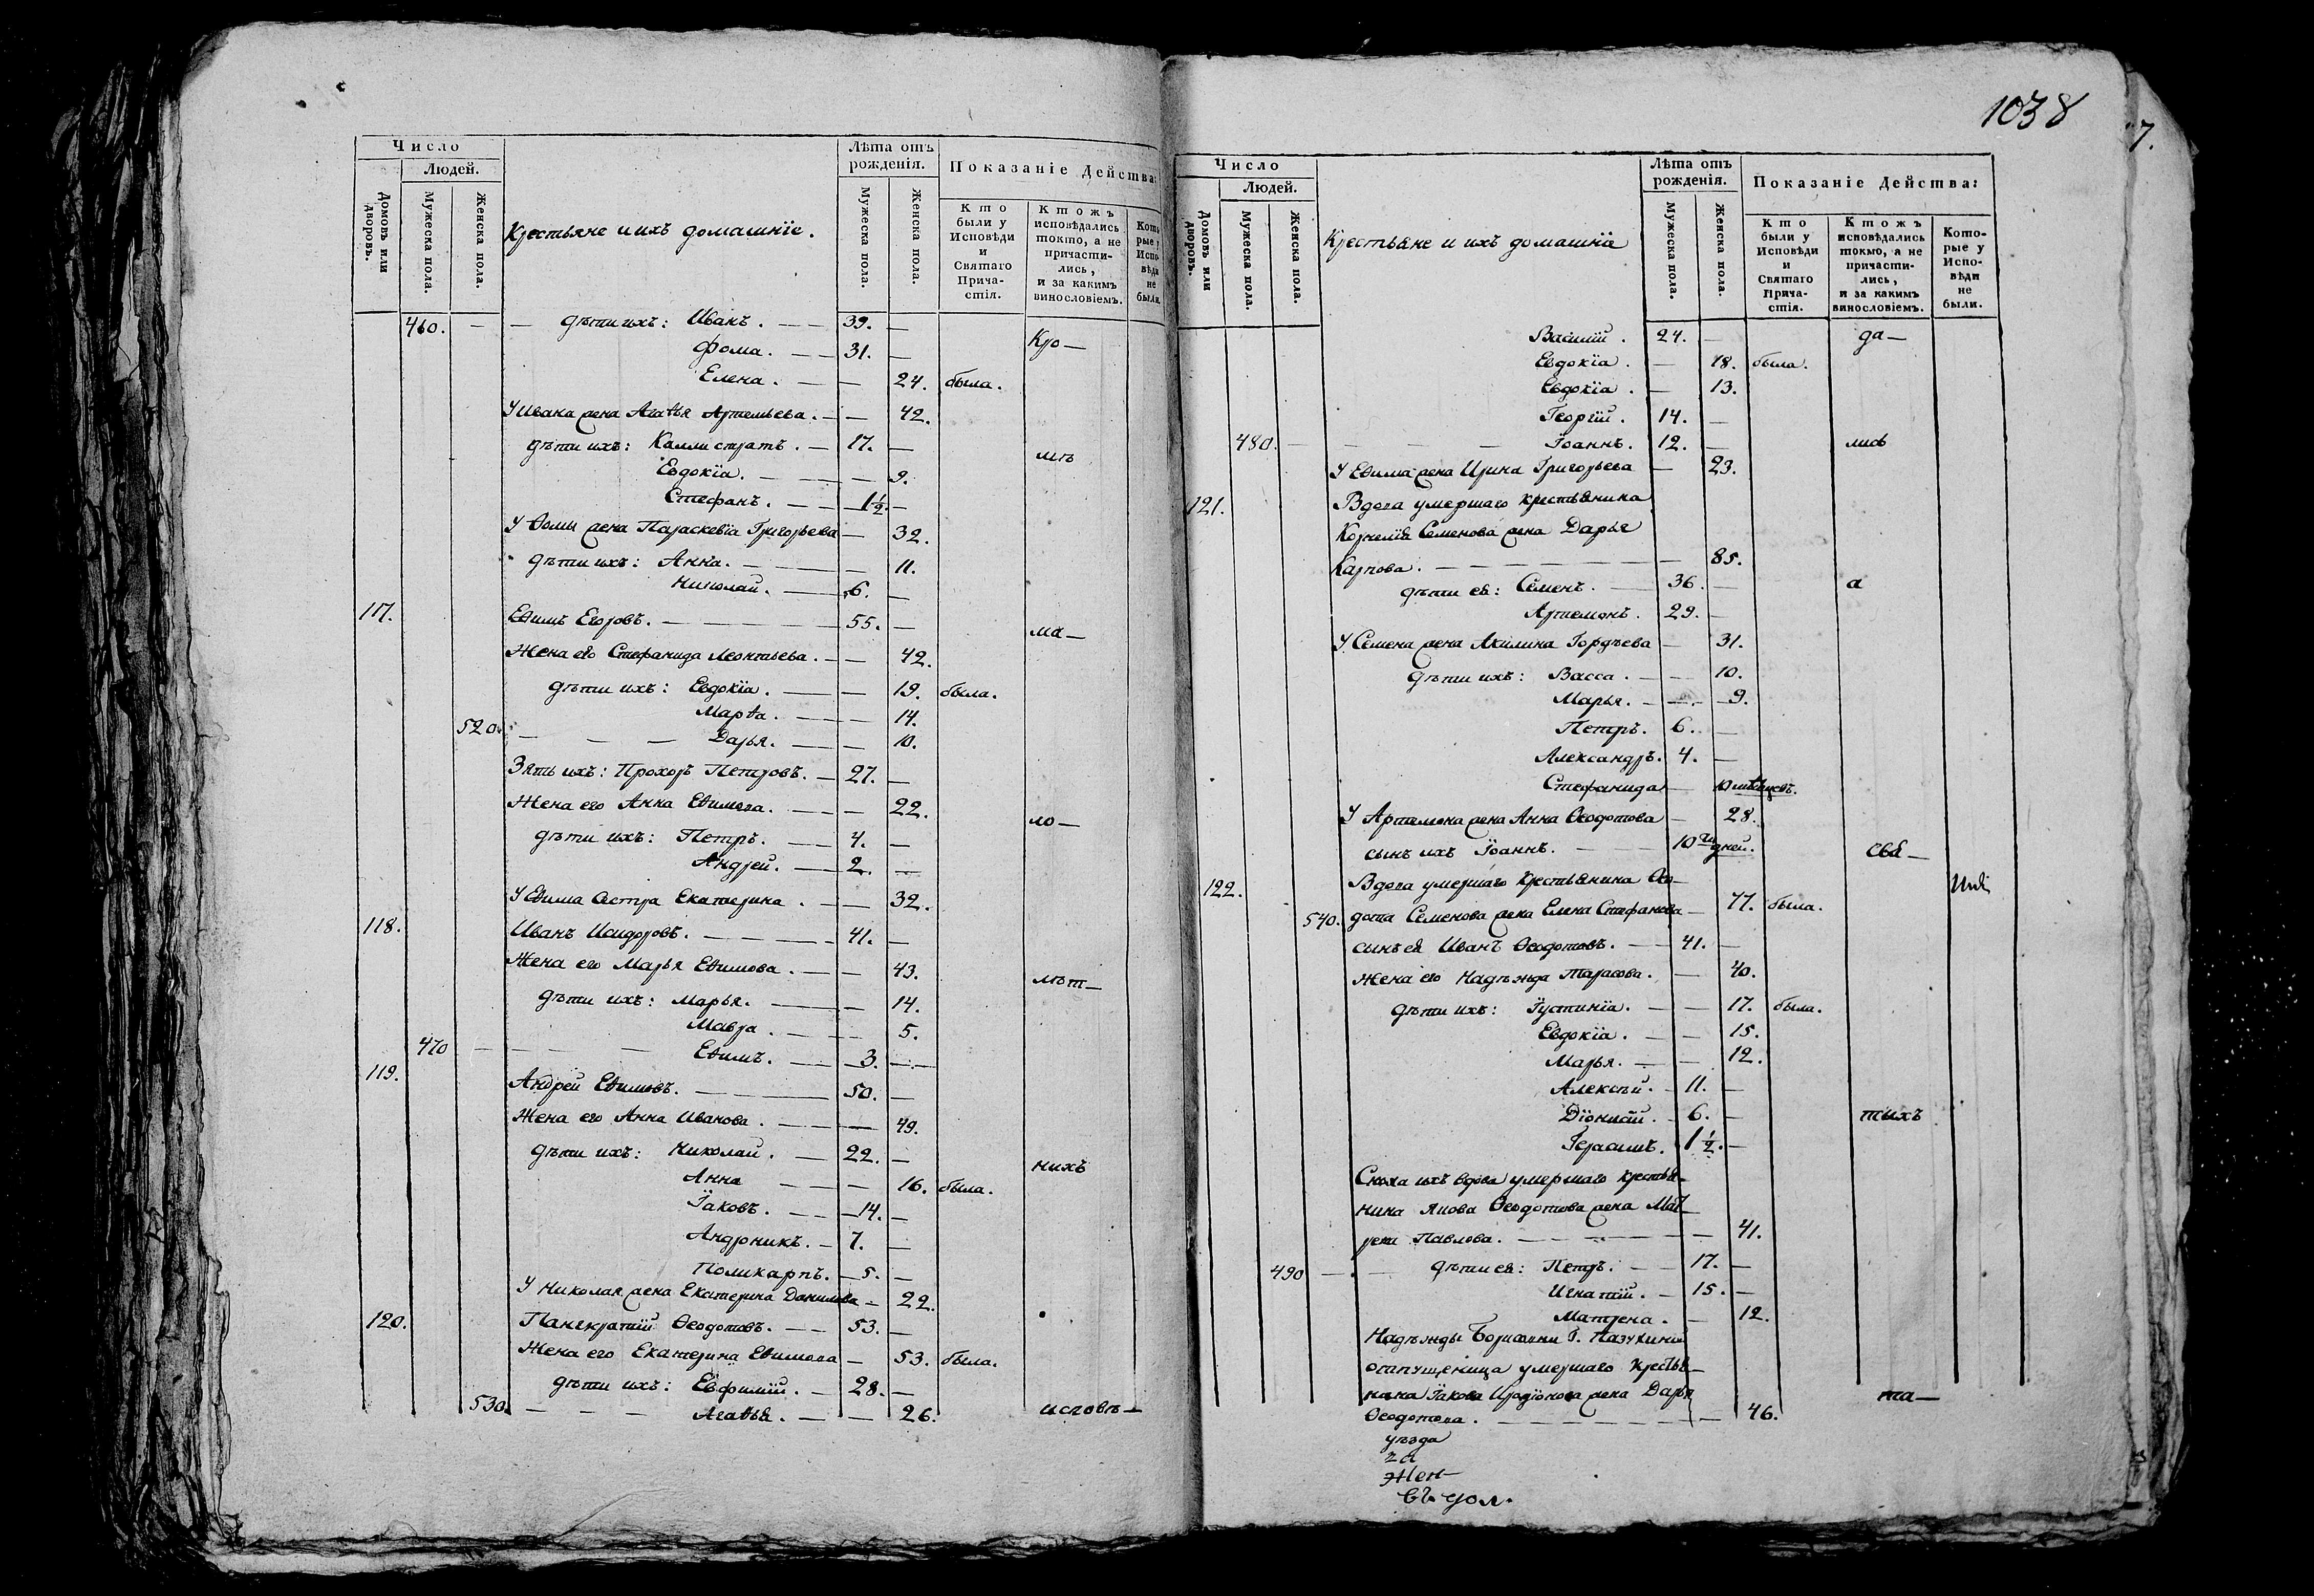 1038
7.
Число
Людей.
Домовъ или дворовъ.
Мужеска пола.
Женска пола.
Крестьяне и ихъ домашнїе.
Лѣта отъ рожденія.
Мужеска пола.
Женска пола.
Показаніе Действа:
Кто были у Исповѣди и Святаго Причастія.
Ктожъ исповѣдались токмо, а не причастились, и за какимъ винословіемъ.
Которые у Исповѣди не были.
460. — — дѣти ихъ: Иванъ. — — 39. —
Фома. — — 31. — Кро—
Елена. — — 24. была.
У Ивана жена Агаѳья Артемьева. — — 42.
дѣти ихъ: Каллистратъ. — 17. —
Евдокїа. — — — 9. мѣ
Стефанъ. — — 1½. —
У Ѳомы жена Параскевїа Григорьева — 32.
дѣти ихъ: Анна. — — — 11.
Николай. — 6. —
117. Еѳимъ Егоровъ. — — — — 55. —
Жена его Стефанида Леонтьева. — — 42. ма—
дѣти ихъ: Евдокїа. — — 19. была.
Марѳа. — — — 14.
520. — — — Дарья. — — 10.
Зять ихъ: Прохоръ Петровъ. — 27. —
Жена его Анна Еѳимова. — — 22.
дѣти ихъ: Петръ. — 4. — ло—
Андрей. — 2. —
У Еѳима сестра Екатерина. — — 32.
118. Иванъ Исидоровъ. — — — — 41. —
Жена его Марья Еѳимова. — — 43.
дѣти ихъ: Марья. — — 14. лѣт—
Мавра. — — 5.
470 — — — Еѳимъ. — 3. —
119. Андрей Еѳимовъ. — — — 50. —
Жена его Анна Иванова. — — — 49.
дѣти ихъ: Николай. — 22. —
Анна — — — 16. была. нихъ
Їаковъ. — — 14. —
Андроникъ. — 7. —
Поликарпъ. — 5. —
У Николая жена Екатерина Данилова — 22.
120. Панкратїй Ѳеодотовъ. — — 53. —
Жена его Екатерина Еѳимова — 53. была.
дѣти ихъ: Евфимїй. — 28. —
530. — — — Агаѳья. — — 26. исповѣ—
Число
Людей.
Домовъ или дворовъ.
Мужеска пола.
Женска пола.
Крестьяне и ихъ домашнїа
Лѣта отъ рожденія.
Мужеска пола.
Женска пола.
Показаніе Действа:
Кто были у Исповѣди и Святаго Причастія.
Ктожъ исповѣдались токмо, а не причастились, и за какимъ винословіемъ.
Которые у Исповѣди не были.
Василїй. 24. — да—
Евдокїа. — 18. была.
Евдокїа. — 13.
Георгїй. 14. —
480. — — — — Їоаннъ. 12. — лись
У Еѳима жена Ирина Григорьева — 23.
121. Вдова умершаго крестьянина
Корнелїя Семенова жена Дарья
Карпова. — — — — — 85.
дѣти ея: Семенъ. — 36. — а
Артемонъ. 29. —
У Семена жена Акилина Гордѣева — 31.
дѣти ихъ: Васса. — — 10.
Марья. — — 9.
Петръ. 6. —
Александръ. 4. —
Стефанида — 10 мѣсяцовъ.
У Артемона жена Анна Ѳеодотова — 28.
сынъ ихъ Їоаннъ. — — 10ти дней. свя—
122. Вдова умершаго крестьянина Ѳео—
540. дота Семенова жена Елена Стефанова — 77. была.
сынъ ея Иванъ Ѳеодотовъ. — 41. —
Жена его Надѣжда Тарасова. — 40.
дѣти ихъ: Їустинїа. — — 17. была.
Евдокїа. — — 15.
Марья. — — 12.
Алексѣй. — 11. —
Дїонисїй. — 6. — тыхъ
Герасимъ. 1½. —
Сноха ихъ вдова умершаго крестья—
нина Якова Ѳеодотова жена Мат—
рена Павлова. — — — — 41.
490 — — дѣти ея: Петръ. — 17. —
Игнатїй. — 15. —
Матрена. — 12.
Надѣжды Борисовны Г. Пазухиной
отпущеница умершаго крестья—
нина Їакова Иродїонова жена Дарья та—
Ѳеодотова. — — — — — 46.
уѣзда
за
Жен—